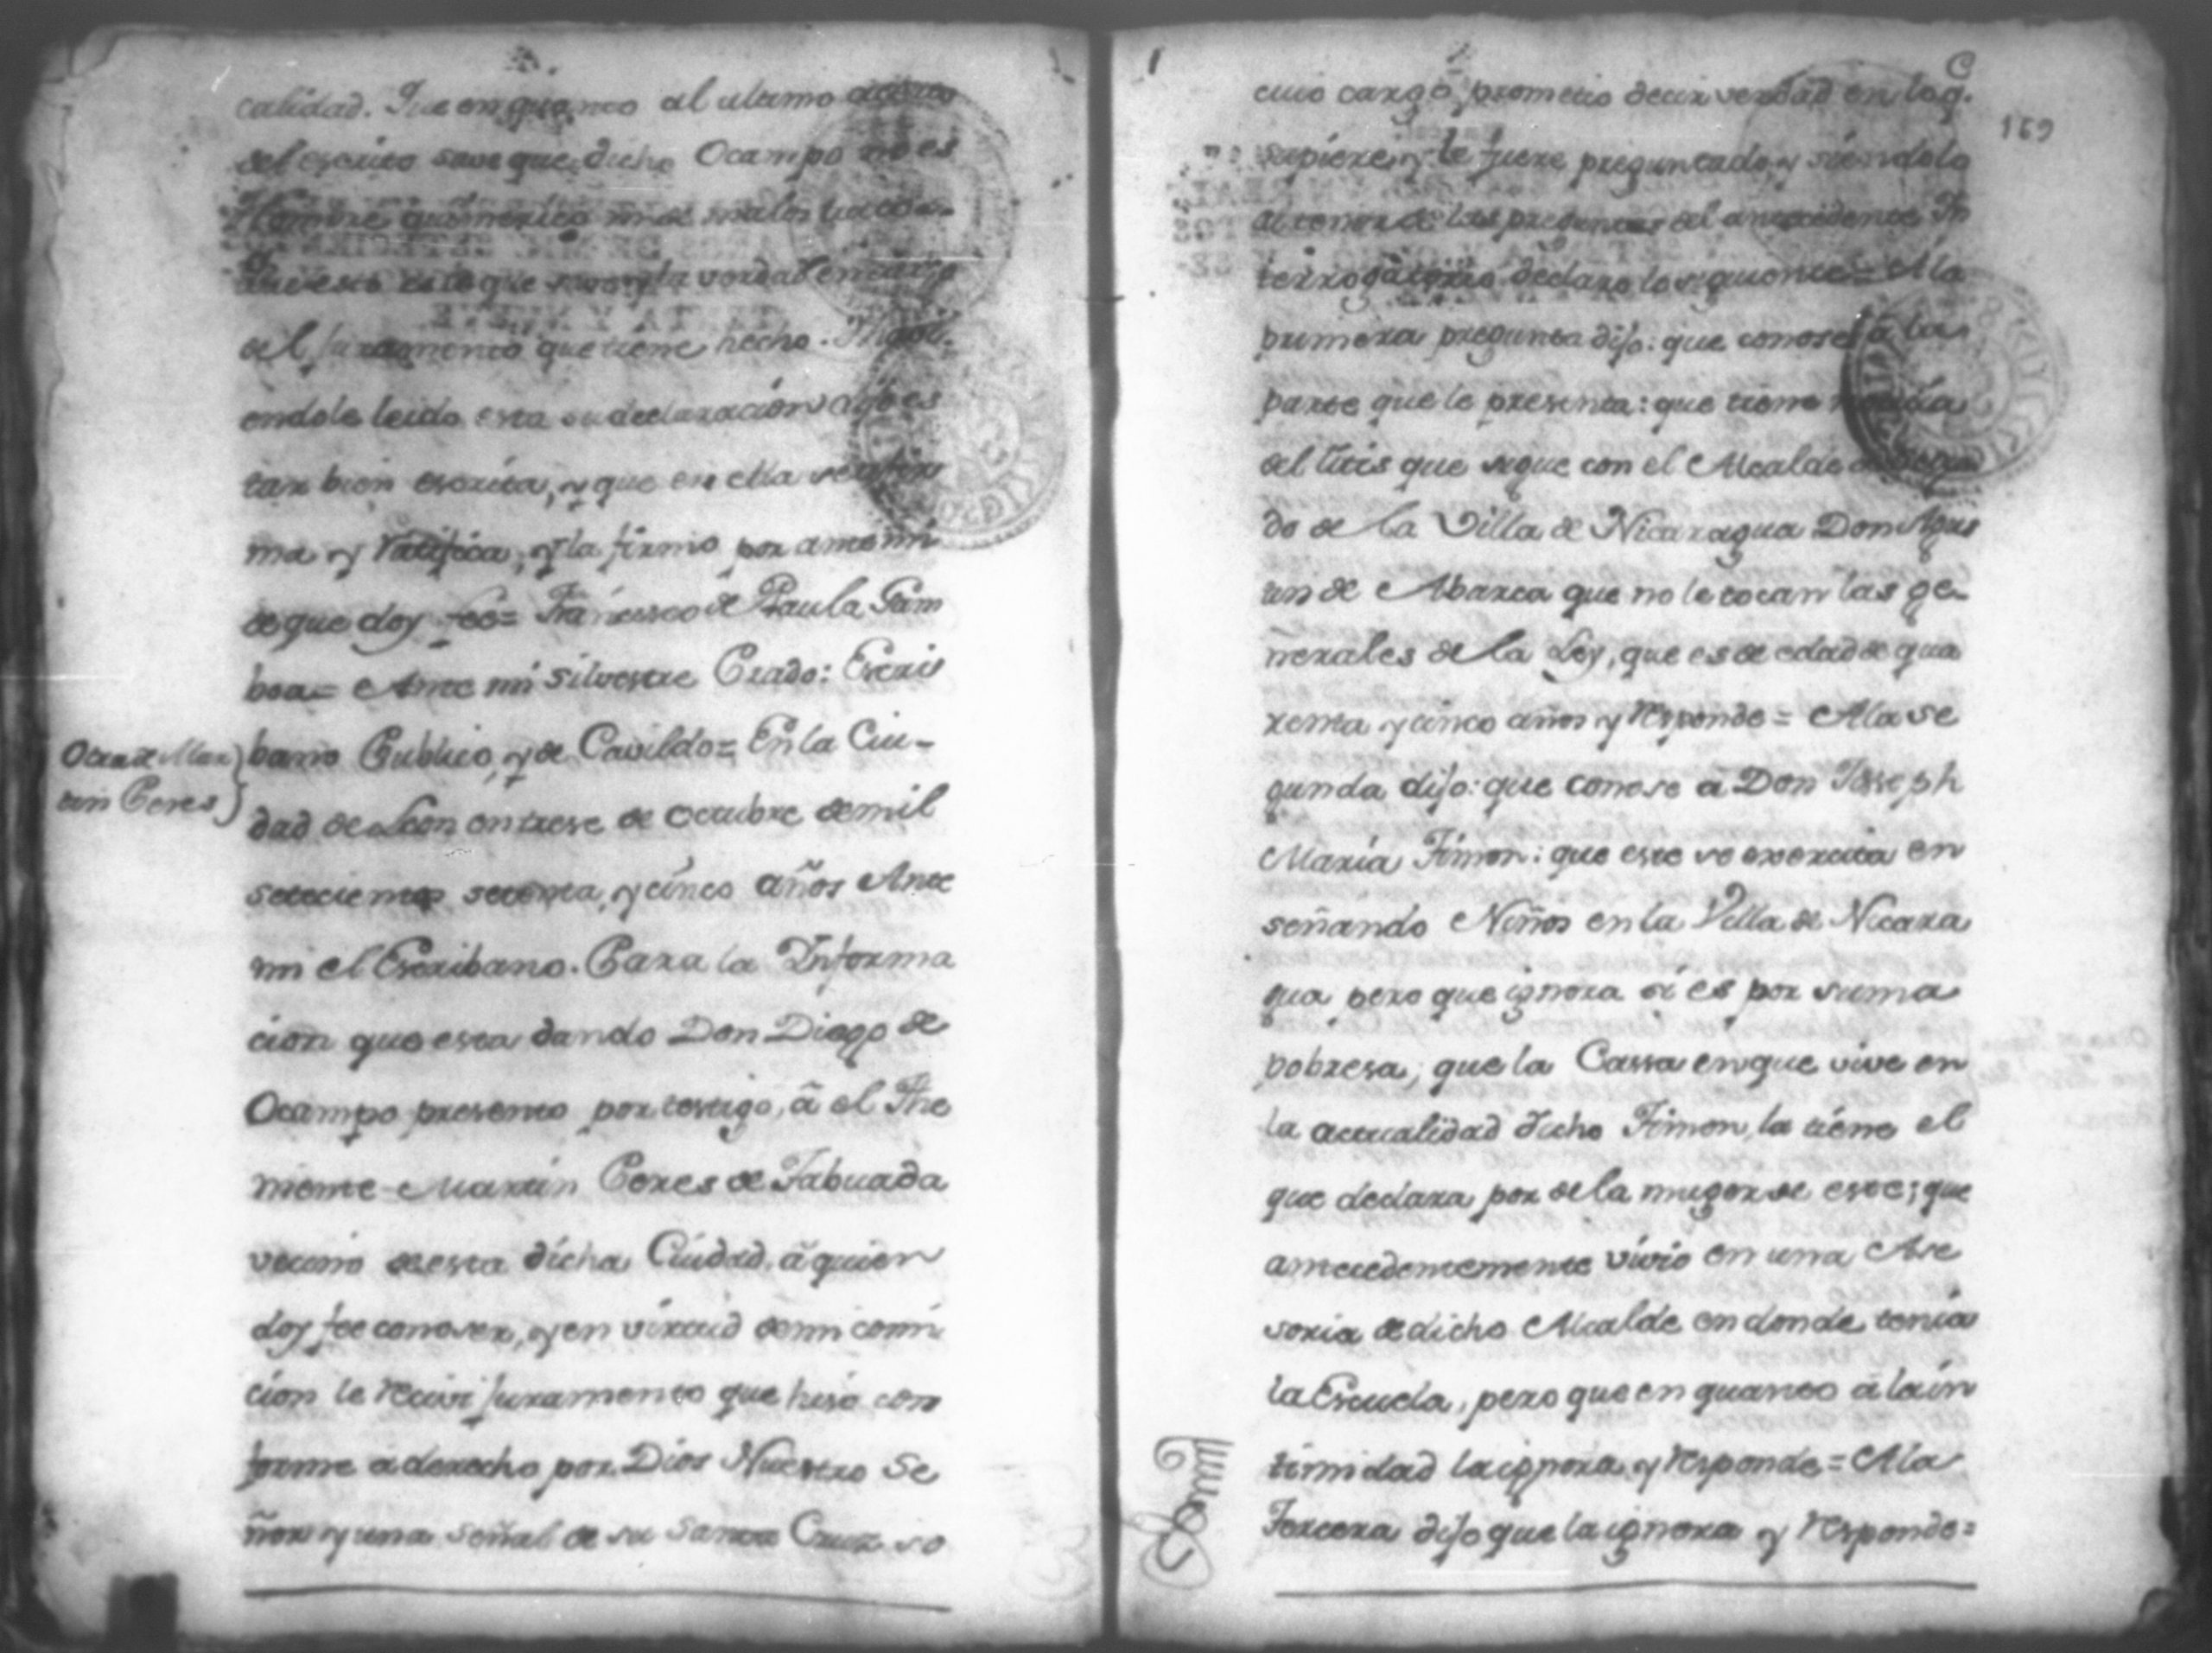 calidad. Que en quanto al ultimo
del escrito save que dicho Ocampo no es
Hombre
que esto es lo que save y la verdad en cargo
del juramento que tiene hecho. 
endole leido esta su declaracion dijo es
tar bien escrita, y que en ella se afir
ma y ratifica, y la firmo por ante mi
de que doy fee= Francisco de Paula Gam
boa= Ante mi Silvestre Prado: Escri
bano Publico, y de Cavildo= En la Ciu-
Otra de Mar
tin Peres
dad de Leon en trese de Octubre de mil
setecientos setenta, y cinco años Ante
mi el Escribano. Para la Informa
cion que esta dando Don Diego de
Ocampo presento por testigo, â el The
niente Martin Peres de Tabuada
vecino de esta dicha Ciudad, â quien
doy fee conoser, y en virtud de mi comi
cion le recivi juramento que hiso con
forme a derecho por Dios Nuestro Se
ñor y una señal de su Santa Cruz so
169
cuio cargo prometio decir verdad en lo q.
supiere, y le fuere preguntado, y siendolo
al tenor de las preguntas del antecedente In
terrogatorio declaro lo siguiente= A la
primera pregunta dijo: que conose â la
parte que le presenta: que tiene noticia
del litis que sigue con el Alcalde
do de la Villa de Nicaragua Don Agus
tin de Abarca que no le tocan las ge-
nerales de la Ley, que es de edad de qua
renta y cinco años y responde= A la se
gunda dijo: que conose a Don Joseph
Maria Simon: que este se exercita en
señando Niños en la Villa de Nicara
gua, pero que ignora si es por suma
pobresa; que la Cassa en que vive en
la actualidad dicho Simon, la tiene el
que declara por de la muger de este; que
antecedentemente vivio en una Acse
soria de dicho Alcalde en donde tenia
la Escuela, pero que en quanto â la in
timidad la ignora, y responde= A la
Tercera dijo que la ignora y responde=